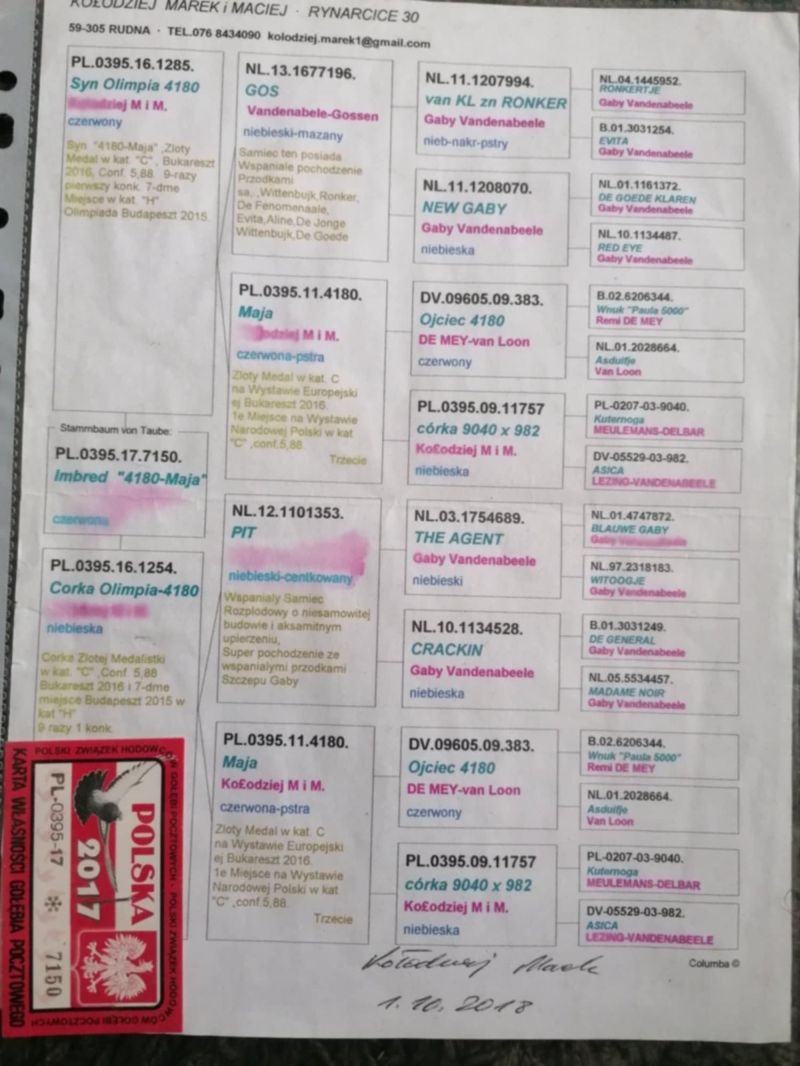 KOŁODZIEJ MAREK i MACIEJ · RYNARCICE 30
59-305 RUDNA · TEL.076 8434090 kolodziej.marek1@gmail.com
PL.0395.16.1285.
Syn Olimpia 4180
M i M.
czerwony
Syn "4180-Maja" ,Zloty
Medal w kat. "C" , Bukareszt
2016, Conf. 5,88. 9-razy
pierwszy konk. 7-dme
Miejsce w kat. "H"
Olimpiada Budapeszt 2015.
Stammbaum von Taube:
PL.0395.17.7150.
Imbred "4180-Maja"
czerwona
PL.0395.16.1254.
Corka Olimpia-4180
niebieska
Corka Zlotej Medalistki
w kat. "C" ,Conf. 5,88
Bukareszt 2016 i 7-dme
miejsce Budapeszt 2015 w
kat "H"
9 razy 1 konk.
NL.13.1677196.
GOS
Vandenabele-Gossen
niebieski-mazany
Samiec ten posiada
Wspaniale pochodzenie
Przodkami
sa, ,Wittenbujk,Ronker,
De Fenomenaale,
Evita,Aline,De Jonge
Wittenbujk,De Goede
PL.0395.11.4180.
Maja
M i M.
czerwona-pstra
Zloty Medal w kat. C
na Wystawie Europejski
ej Bukareszt 2016.
1e Miejsce na Wystawie
Narodowej Polski w kat
"C" ,conf.5,88.
Trzecie
NL.12.1101353.
PIT
niebieski-centkowany
Wspanialy Samiec
Rozplodowy o niesamowitej
budowie i aksamitnym
upierzeniu,
Super pochodzenie ze
wspanialymi przodkami
Szczepu Gaby
PL.0395.11.4180.
Maja
Ko£odziej M i M.
czerwona-pstra
Zloty Medal w kat. C
na Wystawie Europejski
ej Bukareszt 2016.
1e Miejsce na Wystawie
Narodowej Polski w kat
"C" ,conf.5,88.
Trzecie
NL.11.1207994.
van KL zn RONKER
Gaby Vandenabeele
nieb-nakr-pstry
NL.11.1208070.
NEW GABY
Gaby Vandenabeele
niebieska
DV.09605.09.383.
Ojciec 4180
DE MEY-van Loon
czerwony
PL.0395.09.11757
córka 9040 x 982
Ko£odziej M i M.
niebieska
NL.03.1754689.
THE AGENT
Gaby Vandenabeele
niebieski
NL.10.1134528.
CRACKIN
Gaby Vandenabeele
niebieska
DV.09605.09.383.
Ojciec 4180
DE MEY-van Loon
czerwony
PL.0395.09.11757
córka 9040 x 982
Ko£odziej M i M.
niebieska
NL.04.1445952.
RONKERTJE
Gaby Vandenabeele
B.01.3031254.
EVITA
Gaby Vandenabeele
NL.01.1161372.
DE GOEDE KLAREN
Gaby Vandenabeele
NL.10.1134487.
RED EYE
Gaby Vandenabeele
B.02.6206344.
Wnuk "Paula 5000"
Remi DE MEY
NL.01.2028664.
Asduifje
Van Loon
PL-0207-03-9040.
Kuternoga
MEULEMANS-DELBAR
DV-05529-03-982.
ASICA
LEZING-VANDENABEELE
NL.01.4747872.
BLAUWE GABY
Gaby
NL.97.2318183.
WITOOGJE
Gaby Vandenabeele
B.01.3031249.
DE GENERAL
Gaby Vandenabeele
NL.05.5534457.
MADAME NOIR
Gaby Vandenabeele
B.02.6206344.
Wnuk "Paula 5000"
Remi DE MEY
NL.01.2028664.
Asduifje
Van Loon
PL-0207-03-9040.
Kuternoga
MEULEMANS-DELBAR
DV-05529-03-982.
ASICA
LEZING-VANDENABEELE
Columba ©
Kołodziej Marek
1.10.2018
POLSKI ZWIĄZEK HODOWCÓW GOŁĘBI POCZTOWYCH · POLSKI ZWIĄZEK HODOWCÓW GOŁĘBI POCZTOWYCH
KARTA WŁASNOŚCI GOŁĘBIA POCZTOWEGO
PL-0395-17 * 7150
POLSKA
2017